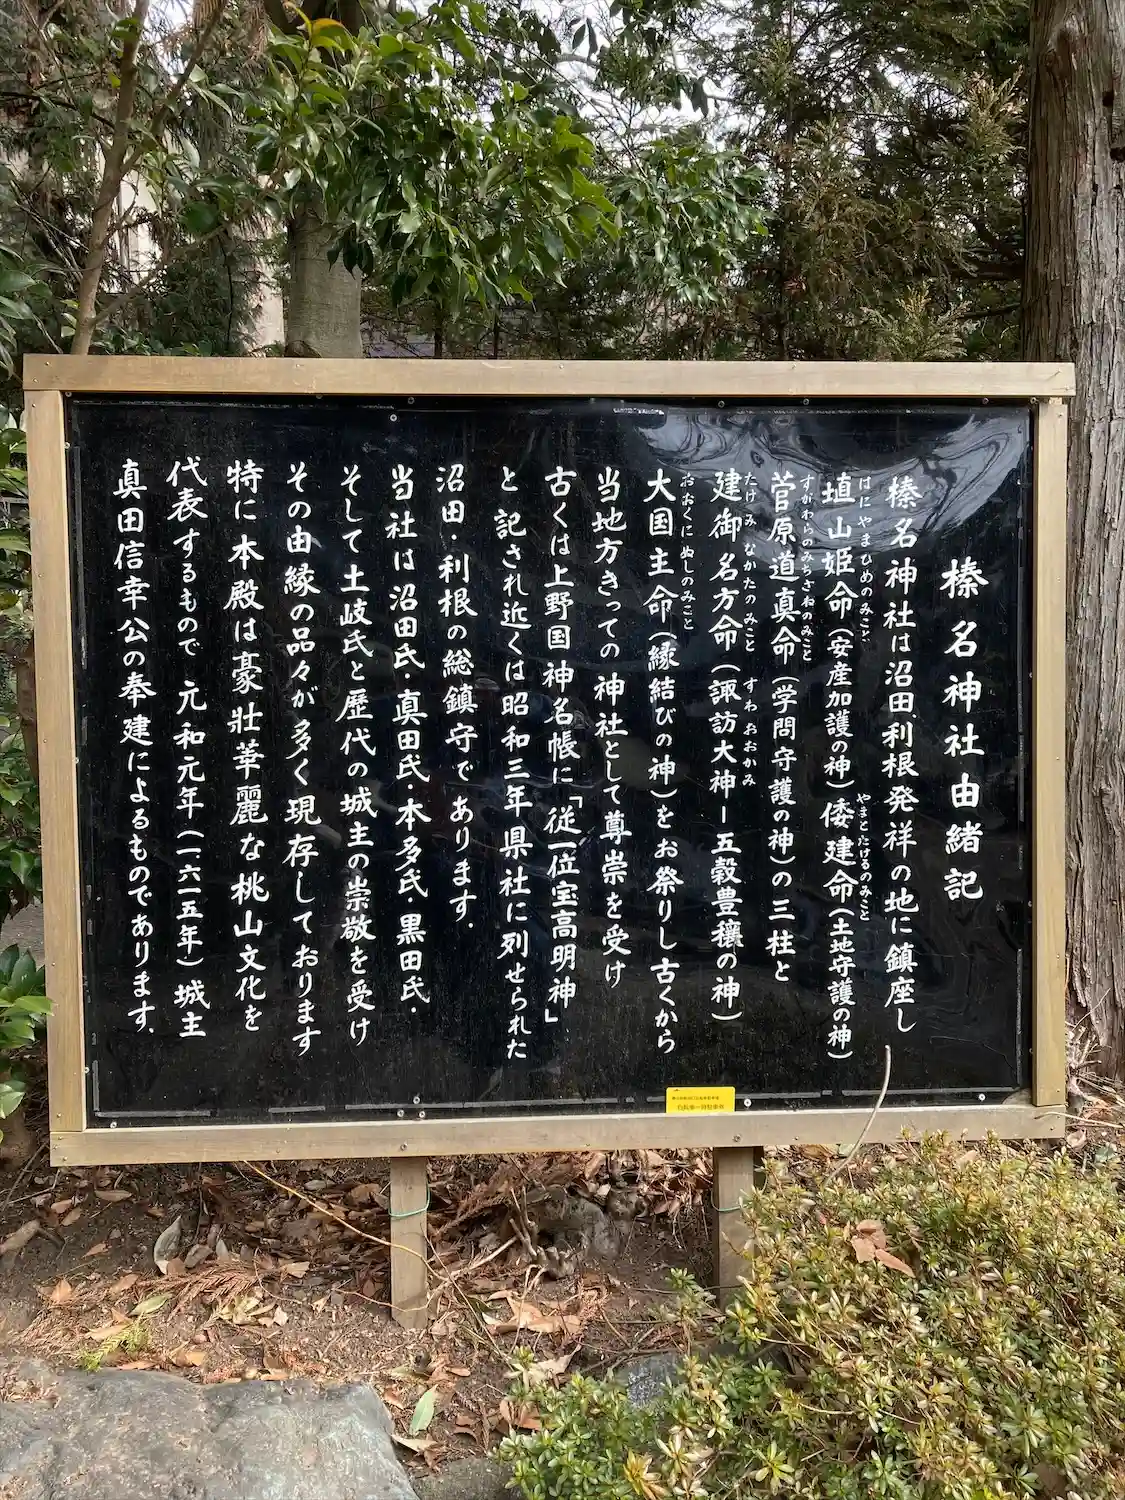 榛名神社由緒記
榛名神社は沼田、利根発祥の地に鎮座し
はにやまひめのみこと やまとたけるのみこと
埴山姫命(安産加護の神)倭建命(土地守護の神)
すがわらのみちざねのみこと
菅原道真命(学問守護の神)の三柱と
たけみなかたのみこと すわおおかみ
建御名方命(諏訪大神ー五穀豊穣の神)
おおくにぬしのみこと
大国主命(縁結びの神)をお祭りし古くから
当地方きっての神社として尊崇を受け
古くは上野国神名帳に「従一位宝高明神」
と記され近くは昭和三年県社に列せられた
沼田・利根の総鎮守であります.
当社は沼田氏・真田氏・本多氏・黒田氏・
そして土岐氏と歴代の城主の崇敬を受け
その由縁の品々が多く現存しております
特に本殿は豪壮華麗な桃山文化を
代表するもので元和元年(一六一五年)城主
真田信幸公の奉建によるものであります.